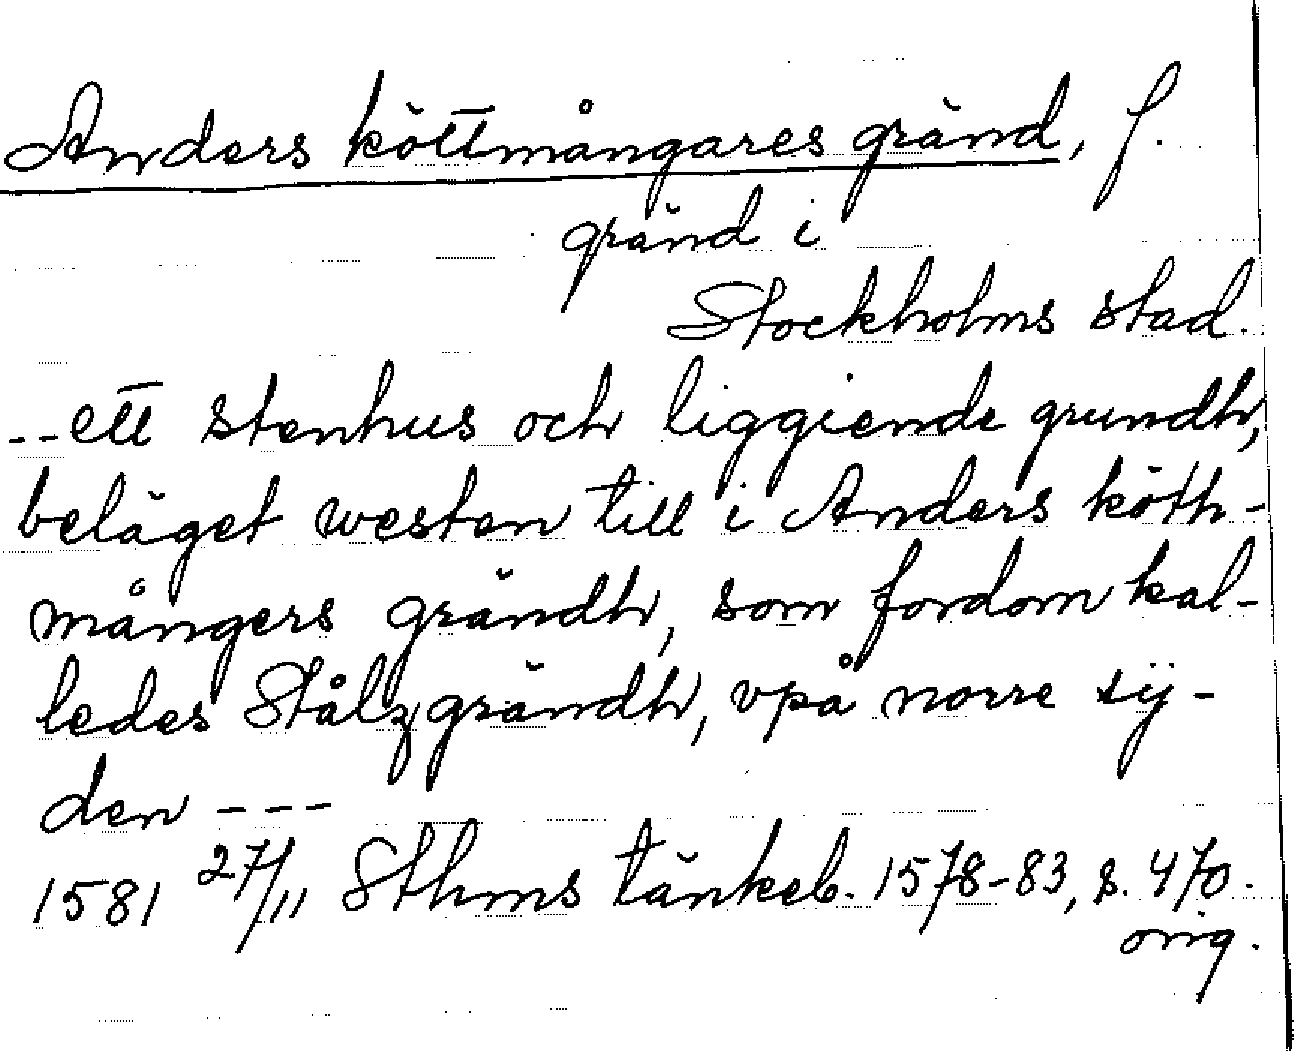 Anders köttmångares gränd, f.
gränd i
Stockholms stad.
--ett stenhus och liggiende grundh,
beläget westen till i Anders köth-
mångers grändh, som fordom kal-
ledes Stålzgrändh, vpå norre sÿ-
den ---
1581 27/11 Sthms tänkeb. 1578-83, s. 470.
orig.